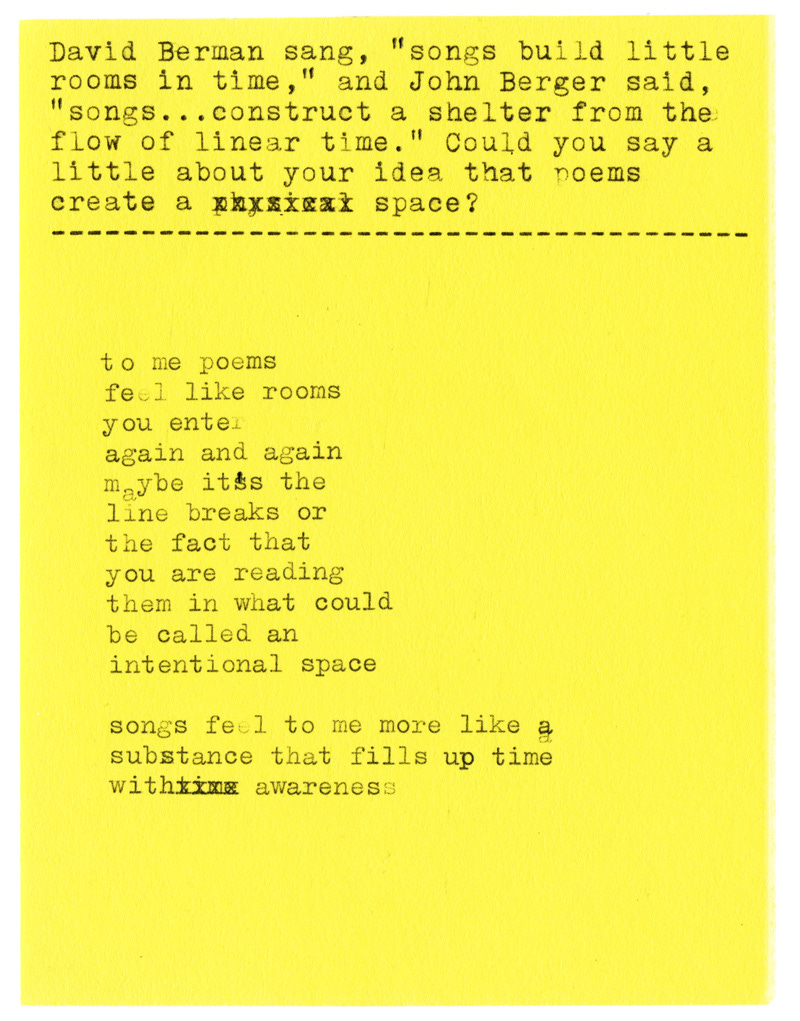 David Berman sang, "songs build little
rooms in time," and John Berger said,
"songs...construct a shelter from the
flow of linear time." Could you say a
little about your idea that poems
create a physical space?
to me poems
feel like rooms
you enter
again and again
maybe it's the
line breaks or
the fact that
you are reading
them in what could
be called an
intentional space
songs feel to me more like a
substance that fills up time
with awareness